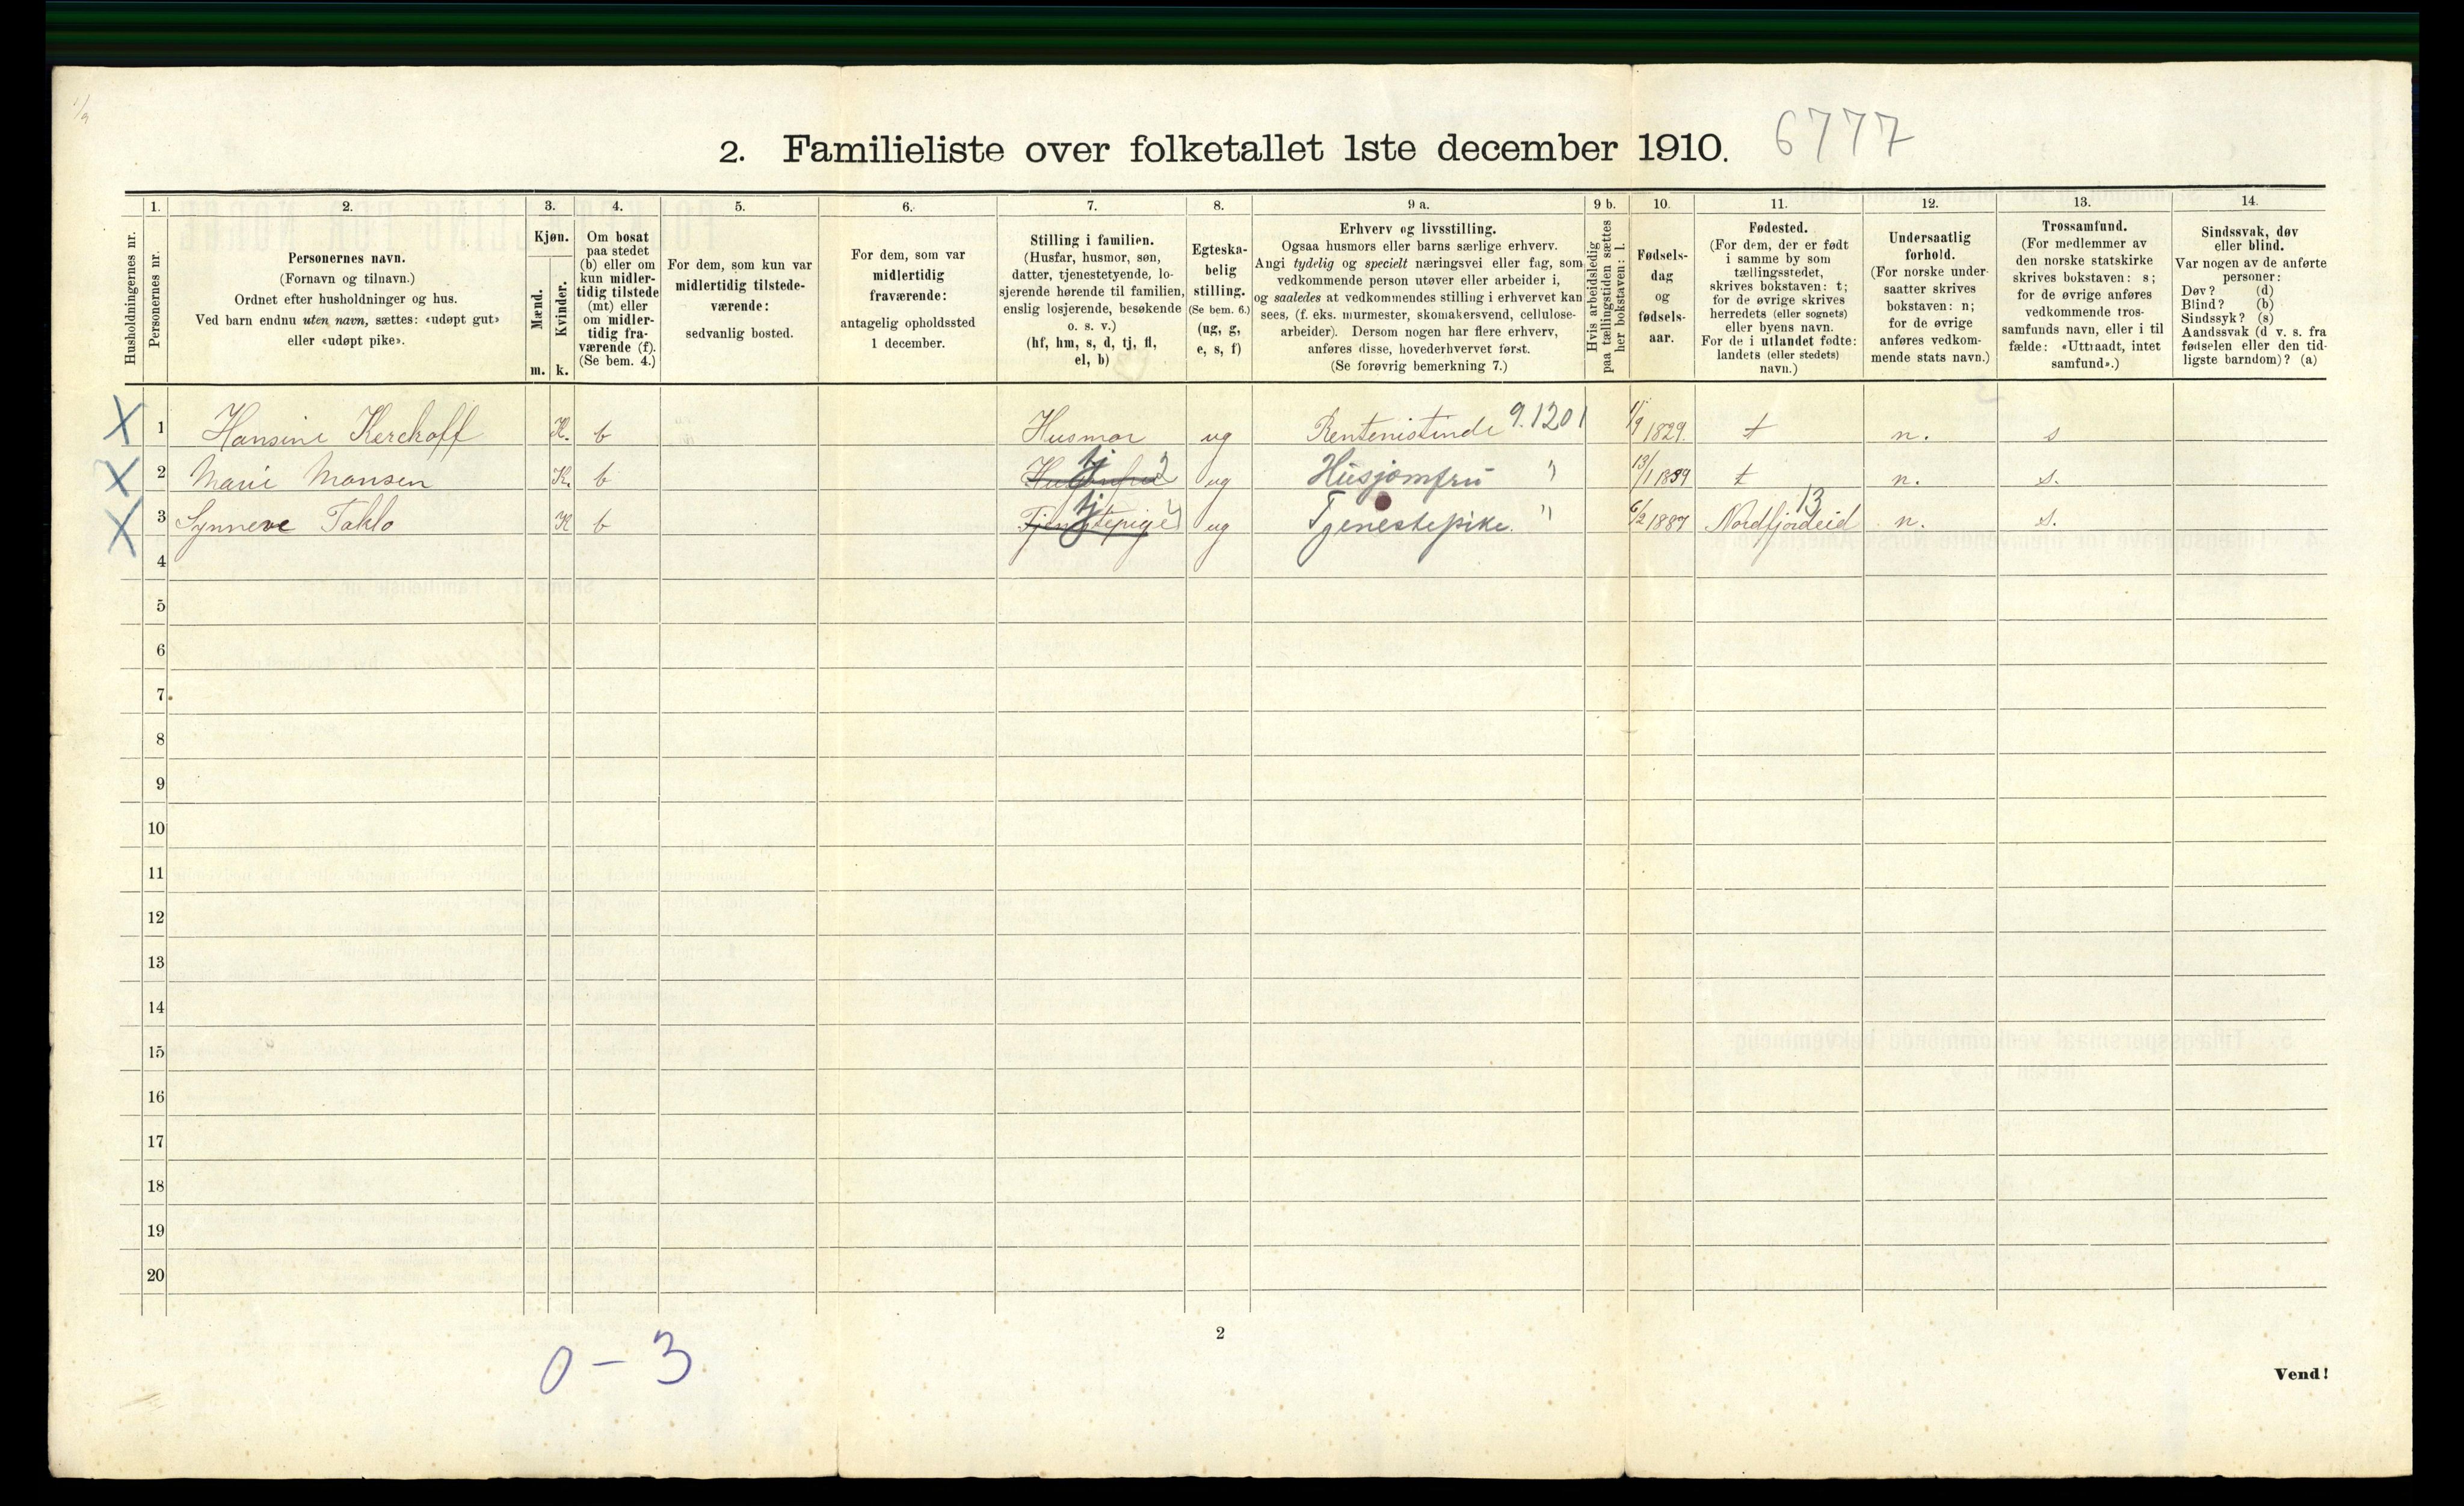 1/9
2. Familieliste over folketallet 1ste december 1910. 6777
Husholdningernes nr.
1.
Personernes nr.
2.
Personernes navn.
(Fornavn og tilnavn.)
Ordnet efter husholdninger og hus.
Ved barn endnu uten navn, sættes: «udøpt gut»
eller «udøpt pike».
3.
Kjøn.
Mænd.
Kvinder.
m. k.
4.
Om bosat
paa stedet
(b) eller om
kun midler-
tidig tilstede
(mt) eller
om midler-
tidig fra-
værende (f).
(Se bem. 4.)
5.
For dem, som kun var
midlertidig tilstede-
værende:
sedvanlig bosted.
6.
For dem, som var
midlertidig
fraværende:
antagelig opholdssted
1 december.
7.
Stilling i familien.
(Husfar, husmor, søn,
datter, tjenestetyende, lo-
sjerende hørende til familien,
enslig losjerende, besøkende
o. s. v.)
(hf, hm, s, d, tj, fl,
el, b)
8.
Egteska-
belig
stilling.
(Se bem. 6.)
(ug, g,
e, s, f)
9 a.
Erhverv og livsstilling.
Ogsaa husmors eller barns særlige erhverv.
Angi tydelig og specielt næringsvei eller fag, som
vedkommende person utøver eller arbeider i,
og saaledes at vedkommendes stilling i erhvervet kan
sees, (f. eks. murmester, skomakersvend, cellulose-
arbeider). Dersom nogen har flere erhverv,
anføres disse, hovederhvervet først.
(Se forøvrig bemerkning 7.)
9 b.
Hvis arbeidsledig
paa tællingstiden sættes
her bokstaven: l.
10.
Fødsels-
dag
og
fødsels-
aar.
11.
Fødested.
(For dem, der er født
i samme by som
tællingsstedet,
skrives bokstaven: t;
for de øvrige skrives
herredets (eller sognets)
eller byens navn.
For de i utlandet fødte:
landets (eller stedets)
navn.)
12.
Undersaatlig
forhold.
(For norske under-
saatter skrives
bokstaven: n;
for de øvrige
anføres vedkom-
mende stats navn.)
13.
Trossamfund.
(For medlemmer av
den norske statskirke
skrives bokstaven: s;
for de øvrige anføres
vedkommende tros-
samfunds navn, eller i til
fælde: «Uttraadt, intet
samfund».)
14.
Sindssvak, døv
eller blind.
Var nogen av de anførte
personer:
Døv? (d)
Blind? (b)
Sindssyk? (s)
Aandssvak (d v. s. fra
fødselen eller den tid-
ligste barndom)? (a)
X 1 Hansine Kerckoff K. b Husmor ug Rentenistinde 9.1201 1829. t n. s
X 2 Marie Monsen K. b tj 2 ug Husjomfru " 13/1 1839 t n. s.
X 3 Synneve Taklo K b Tjenestepige tj ug Tjenestepike. " 6/2 1887 Nordfjordeid 13 n. s.
4
5
6
7
8
9
10
11
12
13
14
15
16
17
18
19
20
0 – 3
2
Vend!